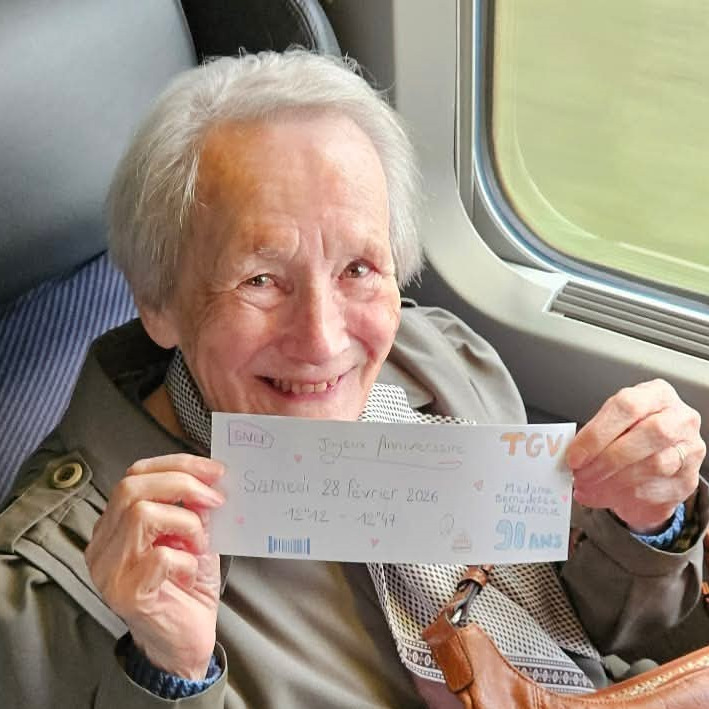 SNCF
Joyeux Anniversaire
TGV
Samedi 28 février 2026
12"12 - 12"47
Madame
Bernadette
90 ANS